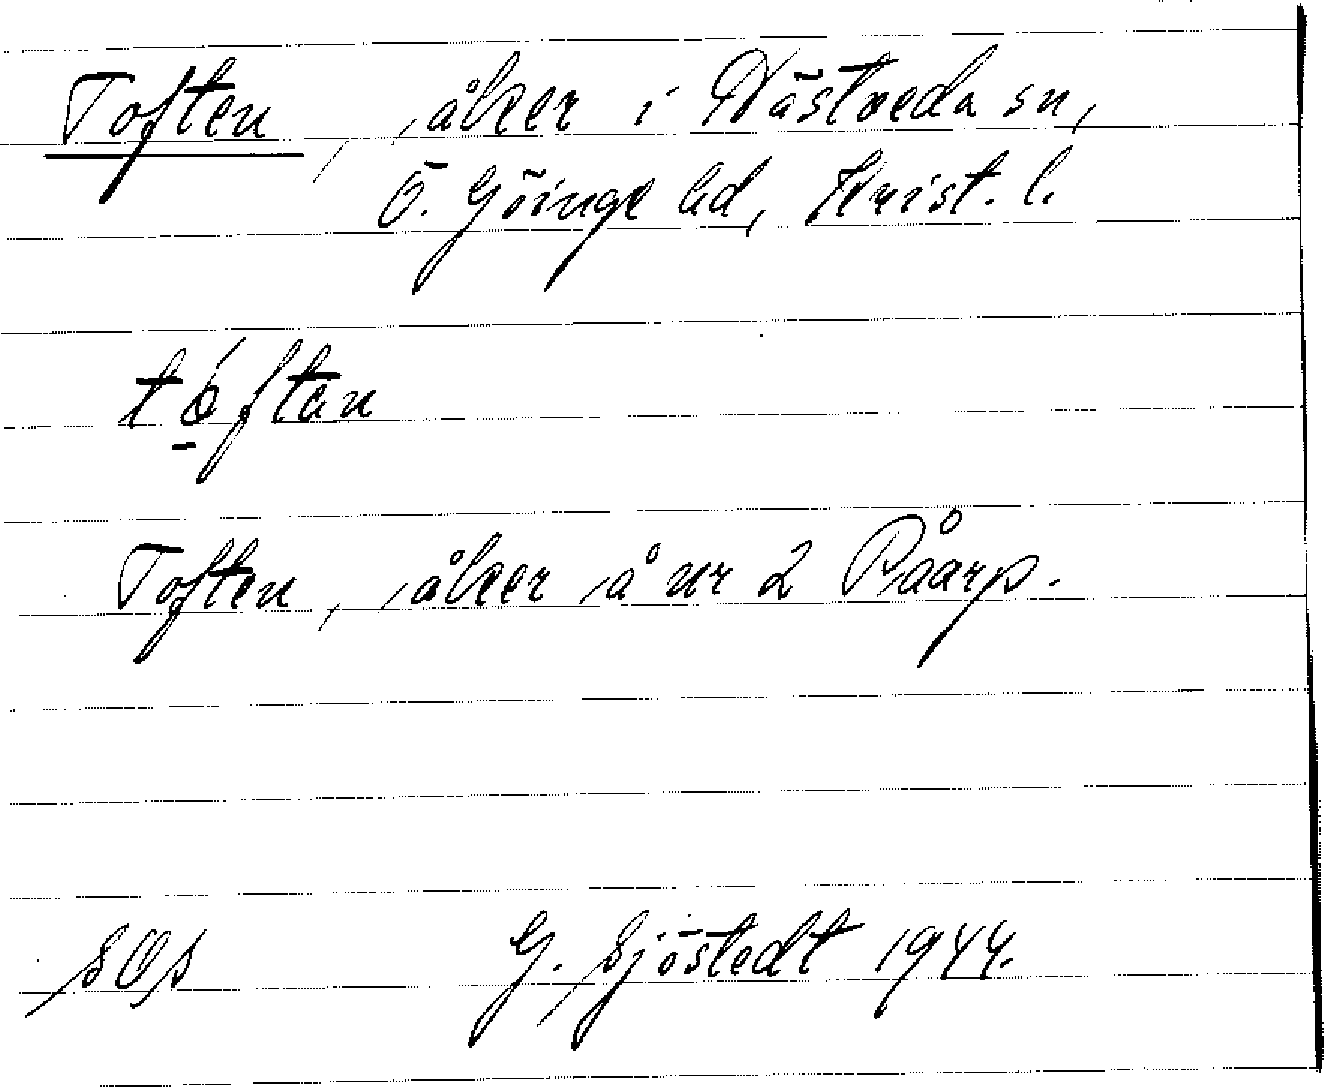 Toften, åker i Västveda sn,
Ö. Göinge hd, Krist. l.
tóftan
Toften, åker å nr 2 Råarp.
SOS G. Sjöstedt 1944.